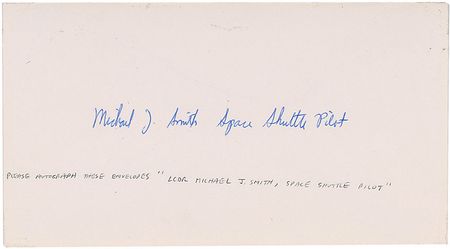 Michael J. Smith Space Shuttle Pilot
PLEASE AUTOGRAPH THESE ENVELOPES "LCDR MICHAEL J. SMITH, SPACE SHUTTLE PILOT"